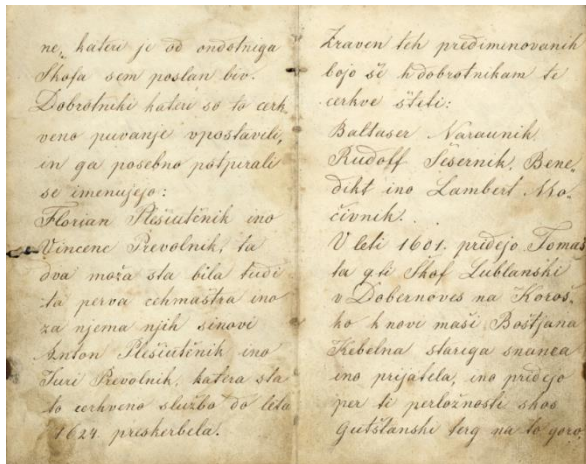 ne, kateri je od ondotniga
Škofa sem poslan biv.
Dobrotniki kateri so to cerk„
veno puvanje vpostavili,
in ga posebno potpirali
se imenujejo:
Florian Plešiutšnik ino
Vincenc Prevolnik, ta
dva moža sta bila tudi
ta perva cehmaštra ino
za njema njih sinovi
Anton Plešiutšnik ino
Juri Prevolnik, katera sta
to cerkveno službo do leta
1624 preskerbela.
Zraven teh predimenovanih
bojo še k dobrotnikam te
cerkve šteti:
Baltaser Naraunik
Rudolf Sešernik, Bene„
dikt ino Lambert Mo„
čivnik.
V leti 1601. pridejo Tomaš
ta 9ti Škof Lublanški
v Dobernoves na Koroš„
ko k novi maši Boštjana
Kebelna starega snanca
ino prijatela, ino pridejo
per ti perložnosti skos
Gutštanski terg na to goro,